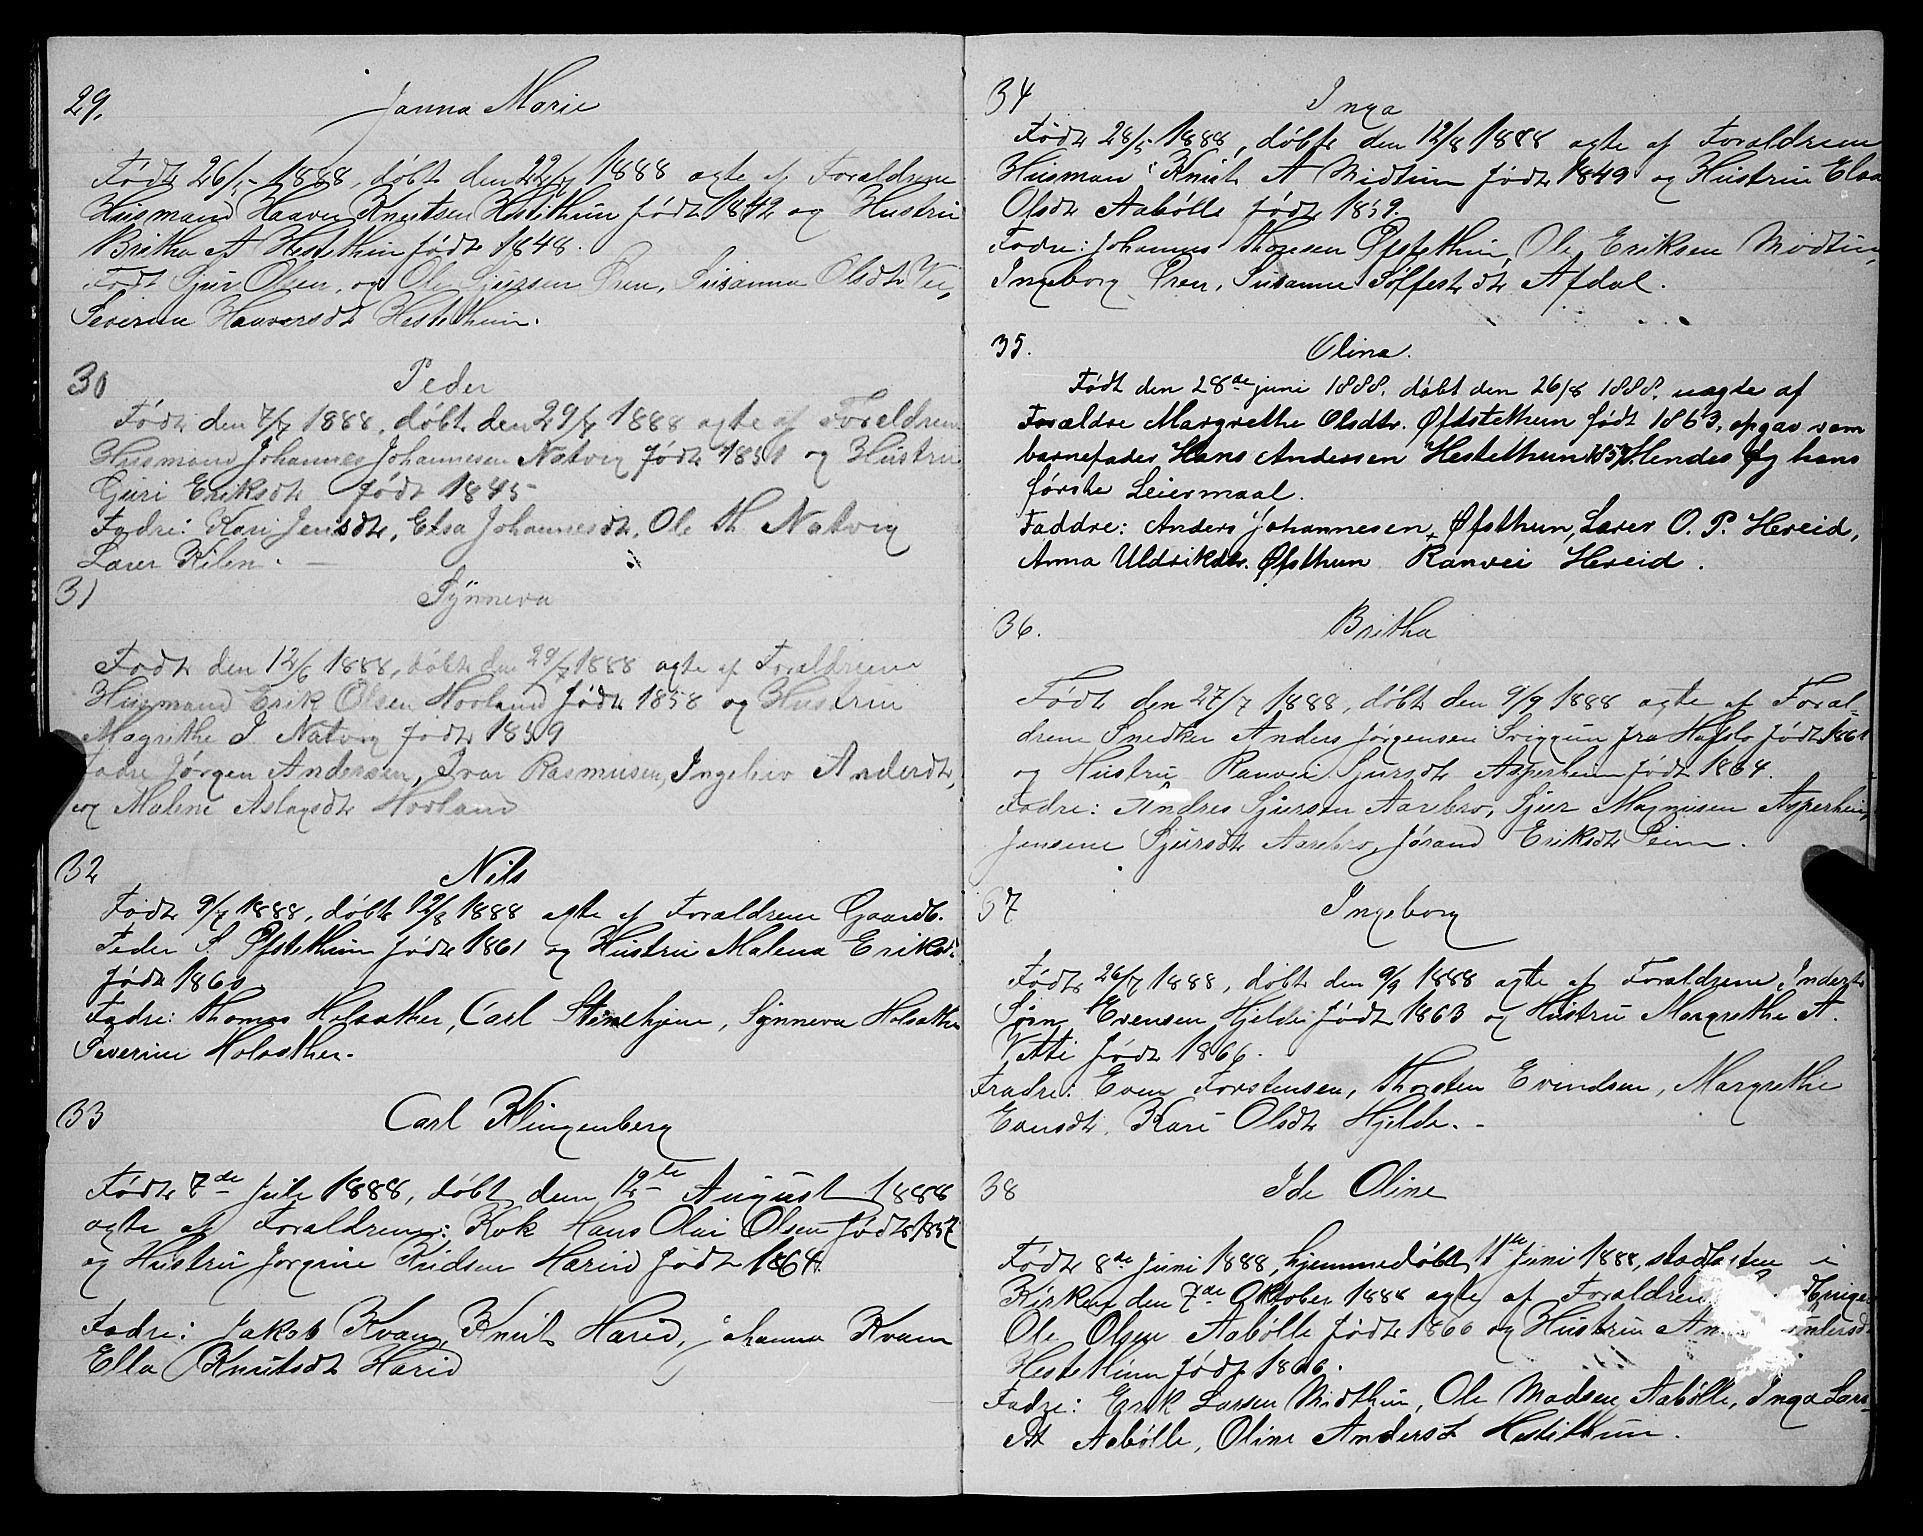 29.
Janna Marie
Født 26/5 1888, døbt den 22/7 1888 ægte af Forældrene
Husmand Haaver Knutsen Hestethun født 1842 og Hustru
Britha A Hestethun født 1848.
Sjur Olsen, og Ole Sjursen Øren, Susanna Olsdt
Severine Haaversdt Hestethun.
30
Peder
Født den 7/7 1888, døbt den 29/7 1888 ægte af Forældrene
Husmand Johannes Johannesen Natvig født 1851 og Hustru
Guri Eriksdt født 1845
Fadre: Kari Jensdt, Elsa Johannesdt, Ole Th Natvig
Lærer Kilen.
31
Synneva
Født den 12/6 1888, døbt den 29/7 1888 ægte af Forældrene
Husmand Erik Olsen Hovland født 1858 og Hustru
Magrethe J. Natvig født 1859
Fadre Jørgen Andersen, Ivar Rasmusen, Ingebor Anderdt,
og Malene Aslagsdt Hovland
32
Nils
Født 9/7 1888, døbt 12/8 1888 ægte af Forældrene Gaardb.
Peder S Øfstethun født 1861 og Hustru Malena Eriksd:
født 1860
Fadre: Thomas Holsæther, Carl Stenehjem, Synneva Holsæther
Severine Holsæther.
33
Carl Klingenberg
Født 7de Juli 1888, døbt den 12te August 1888
ægte af Forældrene: Kok Hans Olai Olsen født 1857
og Hustru Jorgine Hæreid født 1864.
Fadre: Jakob Kvam, Knut Hæreid, Johanna Kvam
Ella Knutsdt Hæreid
34
Inga
Født 28/5 1888, døbt den 12/8 1888 ægte af Forældrene
Husman Knut A Midtun født 1849 og Hustru Elsa
Olsdt Aabølle født 1859.
Fadre: Johannes Thomesen Øfstethun, Ole Eriksen Midtun,
Ingeborg Øren, Susanne Sølfestdt Afdal.
35.
Olina.
Født den 28de juni 1888. døbt den 26/8 1888. uægte af
Forældre Margrethe Olsdtr. Øfstethun født 1863, opgav som
barnefader Hans Andersen Hestethun 1857. Hendes og hans
første Leiermaal.
Faddre: Anders Johannesen Øfsthun, Lærer O. P. Hereid,
Anna Uldriksdtr. Øfsthun Ranvei Hereid.
36.
Britha
Født den 27/7 1888, døbt den 9/9 1888 ægte af Foræl-
drene Snedker Anders Jørgensen Sviggum fra Hafslo født 1861
og Hustru Ranvei Sjursdt Asperheim født 1864.
Fadre: Andres Sjursen Aarebro, Sjur Magnusen Asperheim,
Jensine Sjursdt Aarebro, Jørand Eriksdt Seim.
37
Ingeborg
Født 26/7 1888, døbt den 9/9 1888 ægte af Forældrene, Inderst
Søn Evensen Hjelde født 1863 og Hustru Margrethe A.
Vetti født 1866.
Fradre: Even Torstensen, Thorsten Evindsen, Margrethe
Evensdt, Kari Olsdt Hjelde.
38
Ide Oline
Født 8de Juni 1888, hjemmedøbt 11te Juni 1888, stadfæsten i
Kirken den 7de Oktober 1888 ægte af Forældrene
Ole Olsen Aabølle født 1860 og Hustru
Hestethun født 1866.
Fadre: Erik Larsen Midthun, Ole Madsen Aabølle, Inga Lars-
dt Aabølle, Oline Andersdt Hestethun.